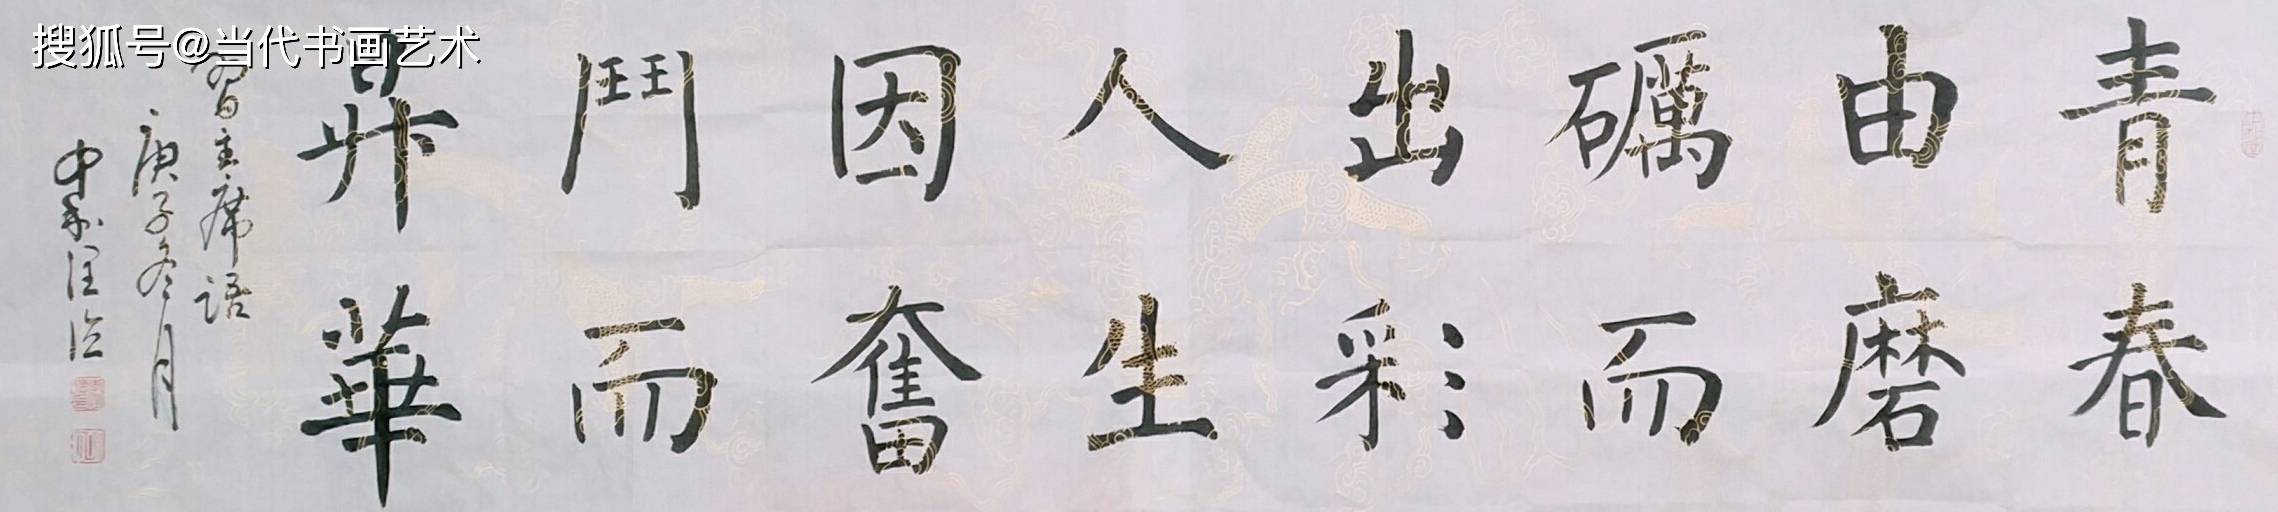 搜狐号@当代书画艺术
青春
由磨
礪而
出彩
人生
因奮
鬥而
昇華
習主席語
庚子冬月